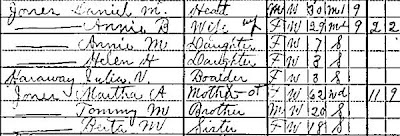 Jones Daniel M. Head M W 30 M 9
—— Annie B Wife of F W 29 M 9 2 2
—— Annie M Daughter F W 7 S
—— Helen A Daughter F W 3 S
Haraway Julia V. Boarder F W 3 S
Jones Martha A Mother-of F W 62 Wd 11 9
—— Tommy M Brother M W 20 S
—— Berta M Sister F W 19 S